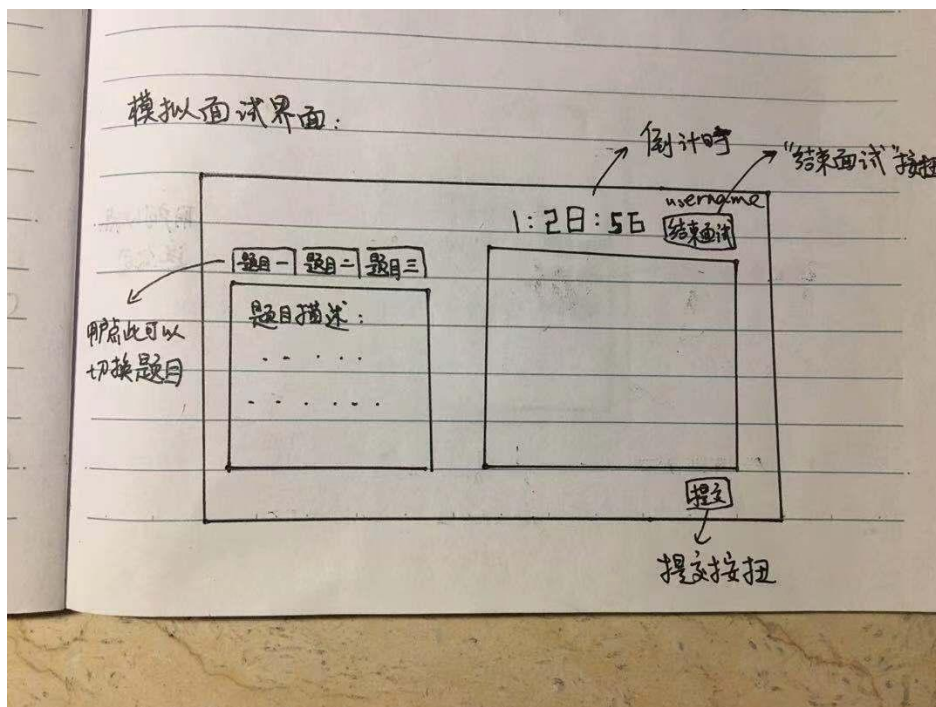 模拟面试界面:
倒计时
"结束面试"按扭
username
1:28:56
结束面试
题目一 题目二 题目三
题目描述:
用户点此可以
切换题目
提交
提交按扭